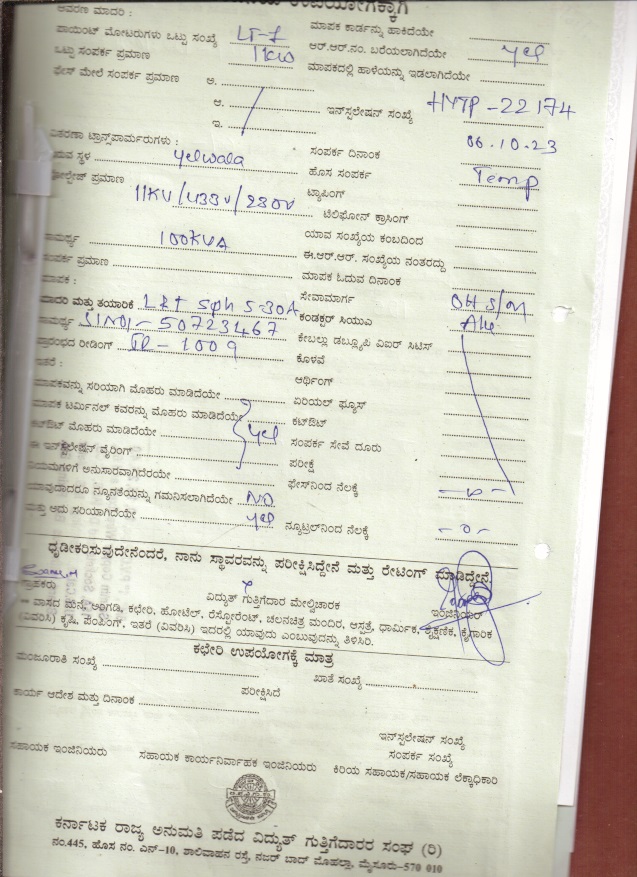 ಆವರಣ ಮಾದರಿ : ಮಾಪಕ ಕಾರ್ಡನ್ನು ಹಾಕಿದೆಯೇ
ಪಾಯಿಂಟ್ ಮೋಟರುಗಳು ಒಟ್ಟು ಸಂಖ್ಯೆ LT-1 ಆರ್.ಆರ್.ನಂ. ಬರೆಯಲಾಗಿದೆಯೇ yes
ಒಟ್ಟು ಸಂಪರ್ಕ ಪ್ರಮಾಣ 1KW ಮಾಪಕದಲ್ಲಿ ಹಾಳೆಯನ್ನು ಇಡಲಾಗಿದೆಯೇ
ಫೇಸ್ ಮೇಲೆ ಸಂಪರ್ಕ ಪ್ರಮಾಣ ಅ.
ಆ. ಇನ್‌ಸ್ಟಲೇಷನ್ ಸಂಖ್ಯೆ HNTP-22174
ಇ.
ವಿತರಣಾ ಟ್ರಾನ್ಸ್‌ಫಾರ್ಮರುಗಳು : ಸಂಪರ್ಕ ದಿನಾಂಕ 06.10.23
ಸ್ಥಳ yelwala ಹೊಸ ಸಂಪರ್ಕ Temp
ಪ್ರಮಾಣ 11KV/433V/230V ಟ್ಯಾಪಿಂಗ್
ಟೆಲಿಫೋನ್ ಕ್ರಾಸಿಂಗ್
ಸಾಮರ್ಥ್ಯ 100KVA ಯಾವ ಸಂಖ್ಯೆಯ ಕಂಬದಿಂದ
ಸಂಪರ್ಕ ಪ್ರಮಾಣ ಈ.ಆರ್.ಆರ್. ಸಂಖ್ಯೆಯ ನಂತರದ್ದು
ಮಾಪಕ : ಮಾಪಕ ಓದುವ ದಿನಾಂಕ
ಮಾದರಿ ಮತ್ತು ತಯಾರಿಕೆ L&T sph 5-30A ಸೇವಾಮಾರ್ಗ OH S/M
ಸಾಮರ್ಥ್ಯ 50723467 ಕಂಡಕ್ಟರ್ ಸಿಯುಎ
ಪ್ರಾರಂಭದ ರೀಡಿಂಗ್ IR-1009 ಕೇಬಲ್ಲು ಡಬ್ಲ್ಯೂಪಿ ಎಐರ್ ಸಿಟಿಸ್
ಇತರೆ : ಕೊಳವೆ
ಮಾಪಕವನ್ನು ಸರಿಯಾಗಿ ಮೊಹರು ಮಾಡಿದೆಯೇ ಆರ್ಥಿಂಗ್
ಮಾಪಕ ಟರ್ಮಿನಲ್ ಕವರನ್ನು ಮೊಹರು ಮಾಡಿದೆಯೇ ಏರಿಯಲ್ ಫ್ಯೂಸ್
ಕಟ್‌ಔಟ್ ಮೊಹರು ಮಾಡಿದೆಯೇ yes ಕಟ್‌ಔಟ್
ಈ ಇನ್‌ಸ್ಟಲೇಷನ್ ವೈರಿಂಗ್ ಸಂಪರ್ಕ ಸೇವೆ ದೂರು
ನಿಯಮಗಳಿಗೆ ಅನುಸಾರವಾಗಿದೆರಯೇ ಪರೀಕ್ಷೆ
ಯಾವುದಾದರೂ ನ್ಯೂನತೆಯನ್ನು ಗಮನಿಸಲಾಗಿದೆಯೇ NO ಫೇಸ್‌ನಿಂದ ನೆಲಕ್ಕೆ
ಮತ್ತು ಅದು ಸರಿಯಾಗಿದೆಯೇ yes ನ್ಯೂಟ್ರಲ್‌ನಿಂದ ನೆಲಕ್ಕೆ -0-
ಧೃಡೀಕರಿಸುವುದೇನೆಂದರೆ, ನಾನು ಸ್ಥಾವರವನ್ನು ಪರೀಕ್ಷಿಸಿದ್ದೇನೆ ಮತ್ತು ರೇಟಿಂಗ್ ಮಾಡಿದ್ದೇನೆ.
ವಿದ್ಯುತ್ ಗುತ್ತಿಗೆದಾರ ಮೇಲ್ವಿಚಾರಕ ಇಂಜಿನಿಯರ್
ವಾಸದ ಮನೆ, ಅಂಗಡಿ, ಕಛೇರಿ, ಹೋಟೆಲ್, ರೆಸ್ಟೋರೆಂಟ್, ಚಲನಚಿತ್ರ ಮಂದಿರ, ಆಸ್ಪತ್ರೆ, ಧಾರ್ಮಿಕ, ಶೈಕ್ಷಣಿಕ, ಕೈಗಾರಿಕ
(ವಿವರಿಸಿ) ಕೃಷಿ, ಪಂಪಿಂಗ್, ಇತರೆ (ವಿವರಿಸಿ) ಇದರಲ್ಲಿ ಯಾವುದು ಎಂಬುವುದನ್ನು ತಿಳಿಸಿರಿ.
ಕಛೇರಿ ಉಪಯೋಗಕ್ಕೆ ಮಾತ್ರ
ಮಂಜೂರಾತಿ ಸಂಖ್ಯೆ ಖಾತೆ ಸಂಖ್ಯೆ
ಕಾರ್ಯ ಆದೇಶ ಮತ್ತು ದಿನಾಂಕ ಪರೀಕ್ಷಿಸಿದೆ
ಇನ್‌ಸ್ಟಲೇಷನ್ ಸಂಖ್ಯೆ
ಸಂಪರ್ಕ ಸಂಖ್ಯೆ
ಸಹಾಯಕ ಇಂಜಿನಿಯರು ಸಹಾಯಕ ಕಾರ್ಯನಿರ್ವಾಹಕ ಇಂಜಿನಿಯರು ಕಿರಿಯ ಸಹಾಯಕ/ಸಹಾಯಕ ಲೆಕ್ಕಾಧಿಕಾರಿ
ಕರ್ನಾಟಕ ರಾಜ್ಯ ಅನುಮತಿ ಪಡೆದ ವಿದ್ಯುತ್ ಗುತ್ತಿಗೆದಾರರ ಸಂಘ (ರಿ)
ನಂ.445, ಹೊಸ ನಂ. ಎನ್-10, ಶಾಲಿವಾಹನ ರಸ್ತೆ, ನಜರ್ ಬಾದ್ ಮೊಹಲ್ಲಾ, ಮೈಸೂರು-570 010